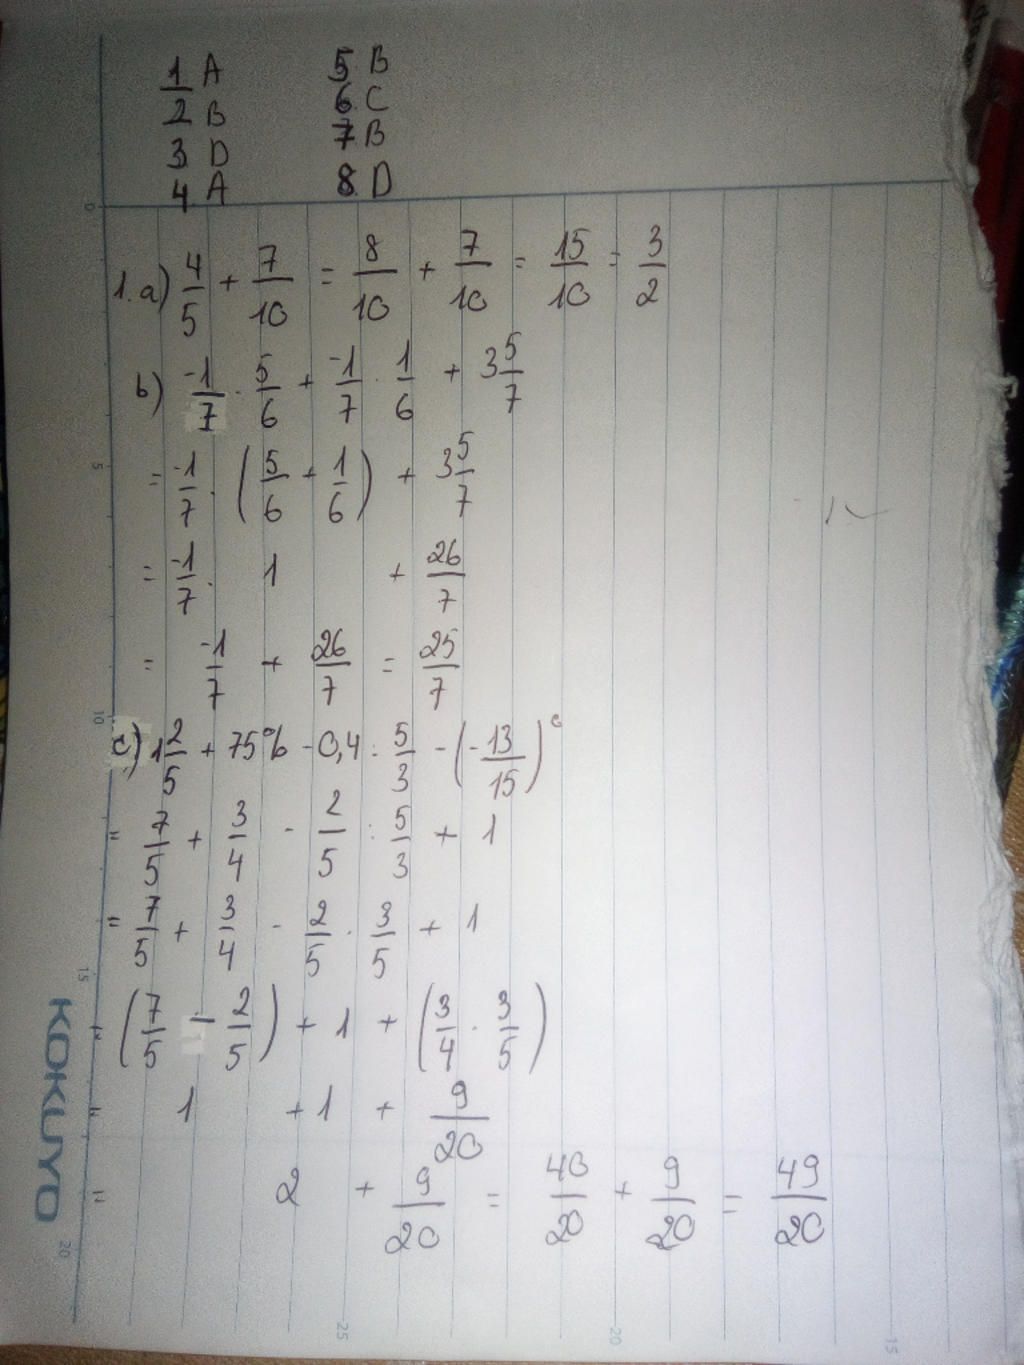 1 A
2 B
3 D
4 A
5. B
6. C
7 B
8. D
1. a) 4/5 + 7/10 = 8/10 + 7/10 = 15/10 = 3/2
b) -1/7 . 5/6 + -1/7 . 1/6 + 3 5/7
= -1/7 . (5/6 + 1/6) + 3 5/7
= -1/7 . 1 + 26/7
= -1/7 + 26/7 = 25/7
c) 1 2/5 + 75% - 0,4 : 5/3 - (-13/15)^0
= 7/5 + 3/4 - 2/5 : 5/3 + 1
= 7/5 + 3/4 - 2/5 . 3/5 + 1
= (7/5 - 2/5) + 1 + (3/4 . 3/5)
= 1 + 1 + 9/20
= 2 + 9/20 = 40/20 + 9/20 = 49/20
0
5
10
15
20
KOKUYO
25
20
15